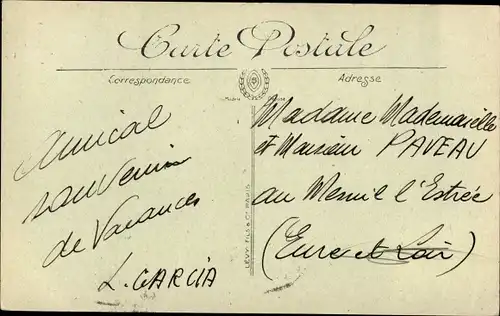 Carte Postale
Correspondance
Adresse
Amical
souvenir
de Vacances
L. GARCIA
LÉVY FILS & Cie PARIS
Madame Mademoiselle
et Monsieur PAVEAU
au Mesnil l'Estrée
(Eure et Loir)